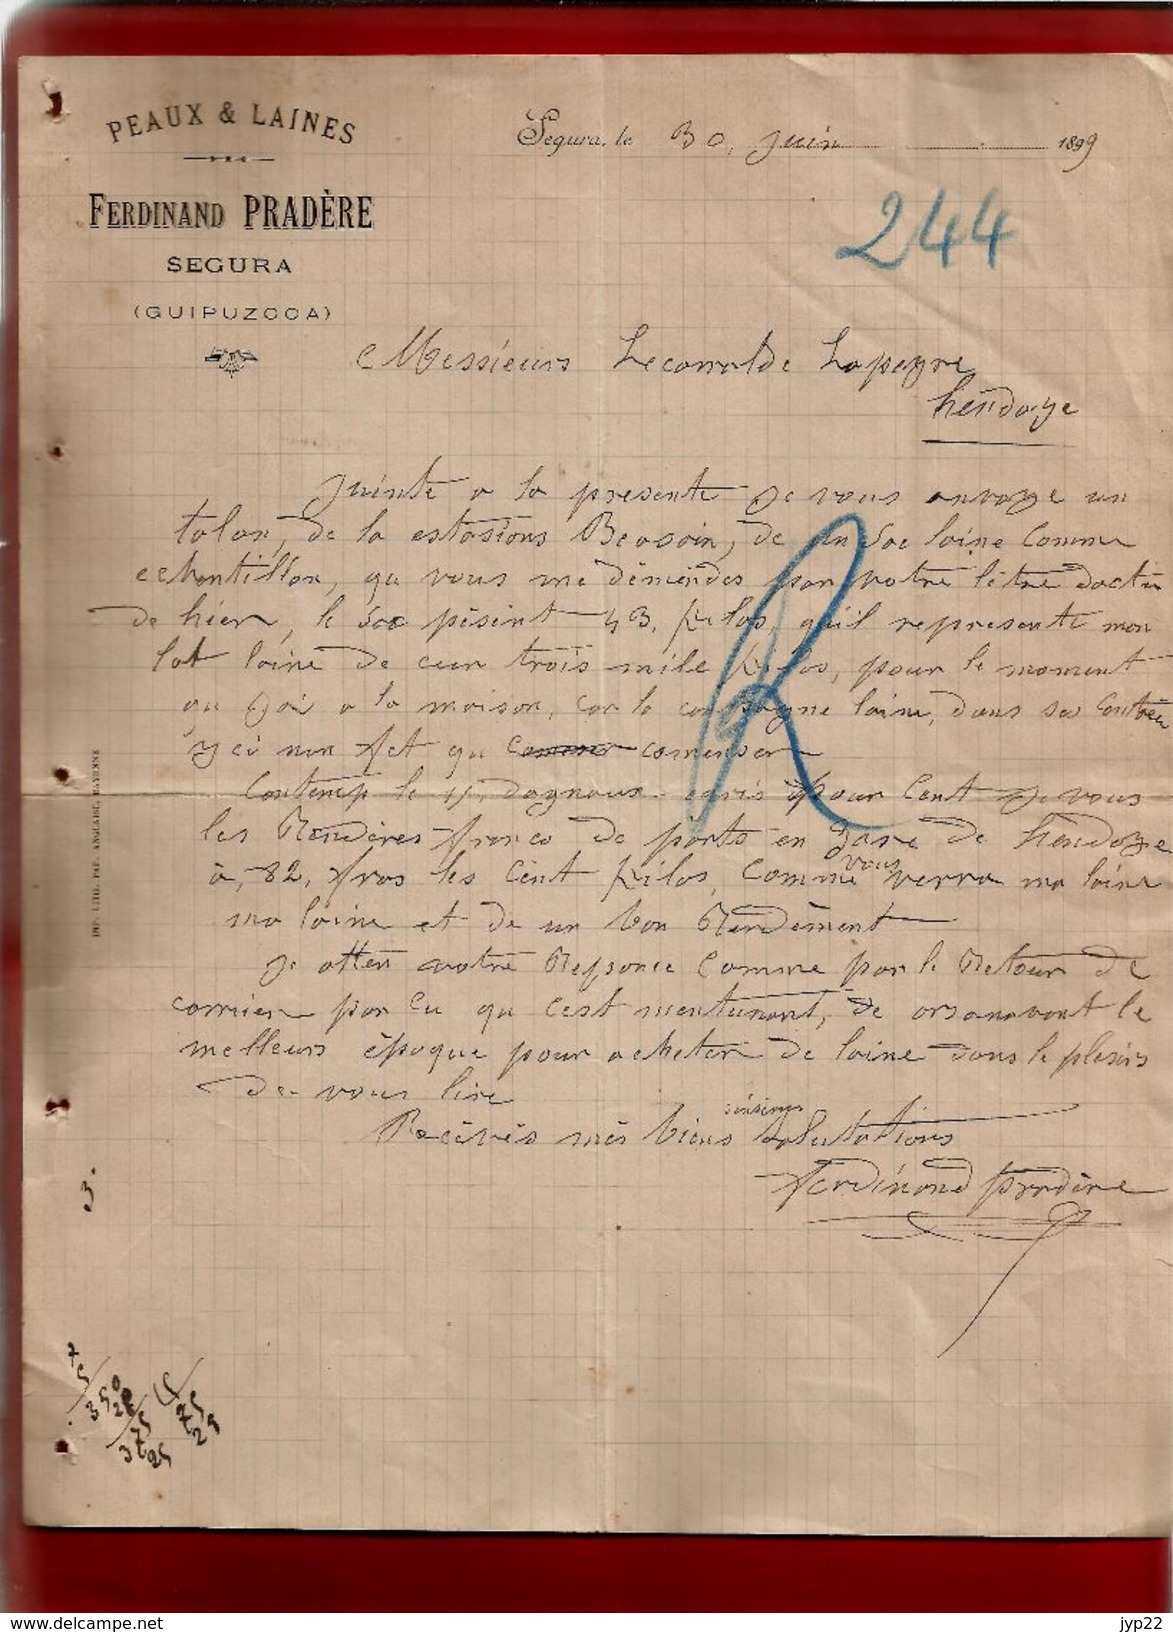 PEAUX & LAINES
FERDINAND PRADÈRE
SEGURA
(GUIPUZCOA)
Segura, le 30, Juin 1899
244
Messieurs Leconralde Lapeyre
hendaye
Juinte a la presente Je vous anvoye un
talon, de la estasions Beasain, de un Sac laine Comme
echantillon, qu vous me démendes par votre létre
de hier, le Sac pésint 43, kilos, qu'il represente mon
lot laine de trois mile kilos, pour le moment
qu Jai a la maison, Car la campagne laine, dans
yci nen fet qu comenser
le pour Cent Je vous
les Rendères franco de ports en gare de hendaye
à, 82, fras les Cént kilos, Comme vous verra ma laine
ma laine et de un bon Rendément
Je atten votre Reponce Comme par le Retour de
corrier par Cu qu Cest mentunant, de orsanavant le
melleurs époque pour acheter de laine dans le plesirs
de vous lire
Recévés més biens sinsères Salutations
Ferdinand Pradère
3.
IMP. LITH. PAP. BAYONNE
delcampe.net
jyp22